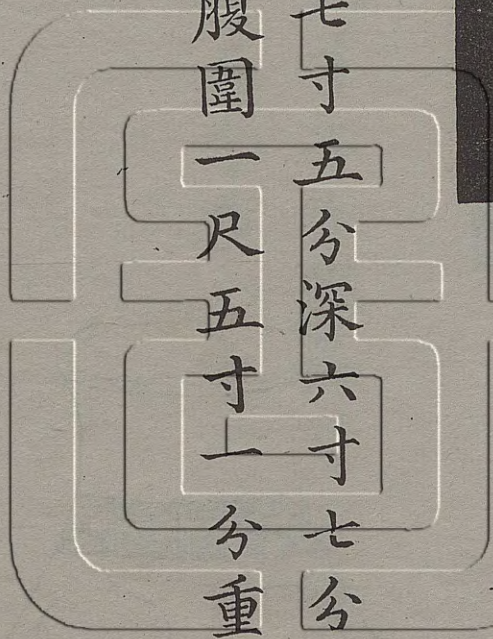 七寸五分深六寸七分
腹圍一尺五寸一分重